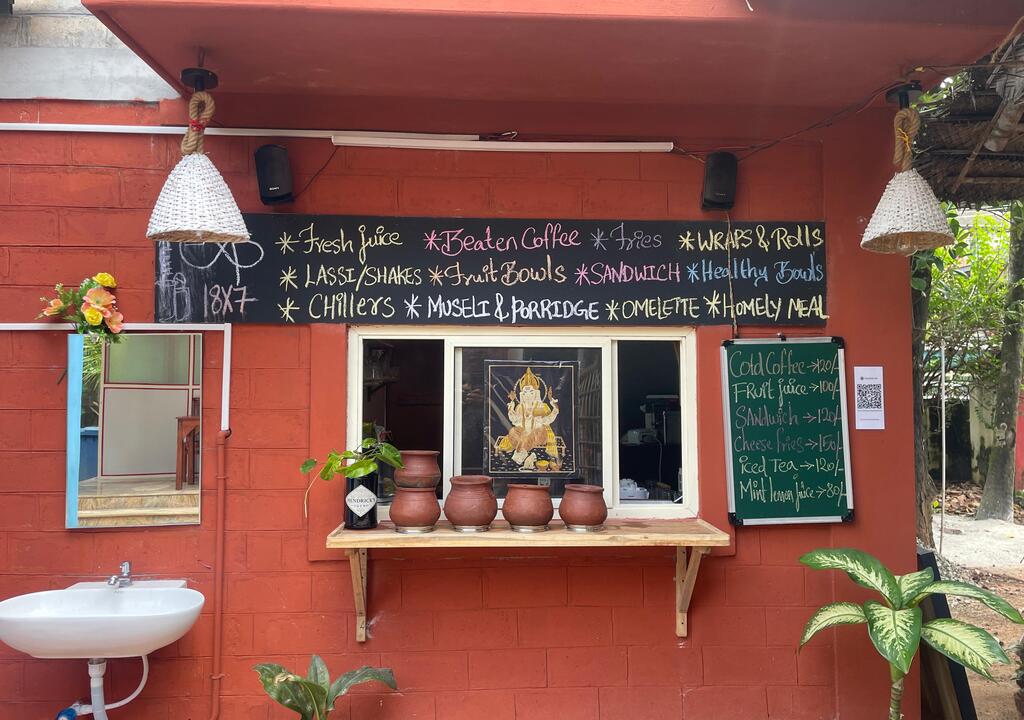 *Fresh juice *Beaten Coffee *Fries *WRAPS & Rolls
*LASSI/SHAKES *Fruit Bowls *SANDWICH *Healthy Bowls
18X7 *CHillers *MUSELI & PORRIDGE *OMELETTE *HOMELY MEAL
Cold Coffee →120/-
Fruit juice →100/-
SANDWICH →120/-
CHEESE fries →150/-
iced TEA →120/-
Mint lemon juice →80/-
HENDRICK'S